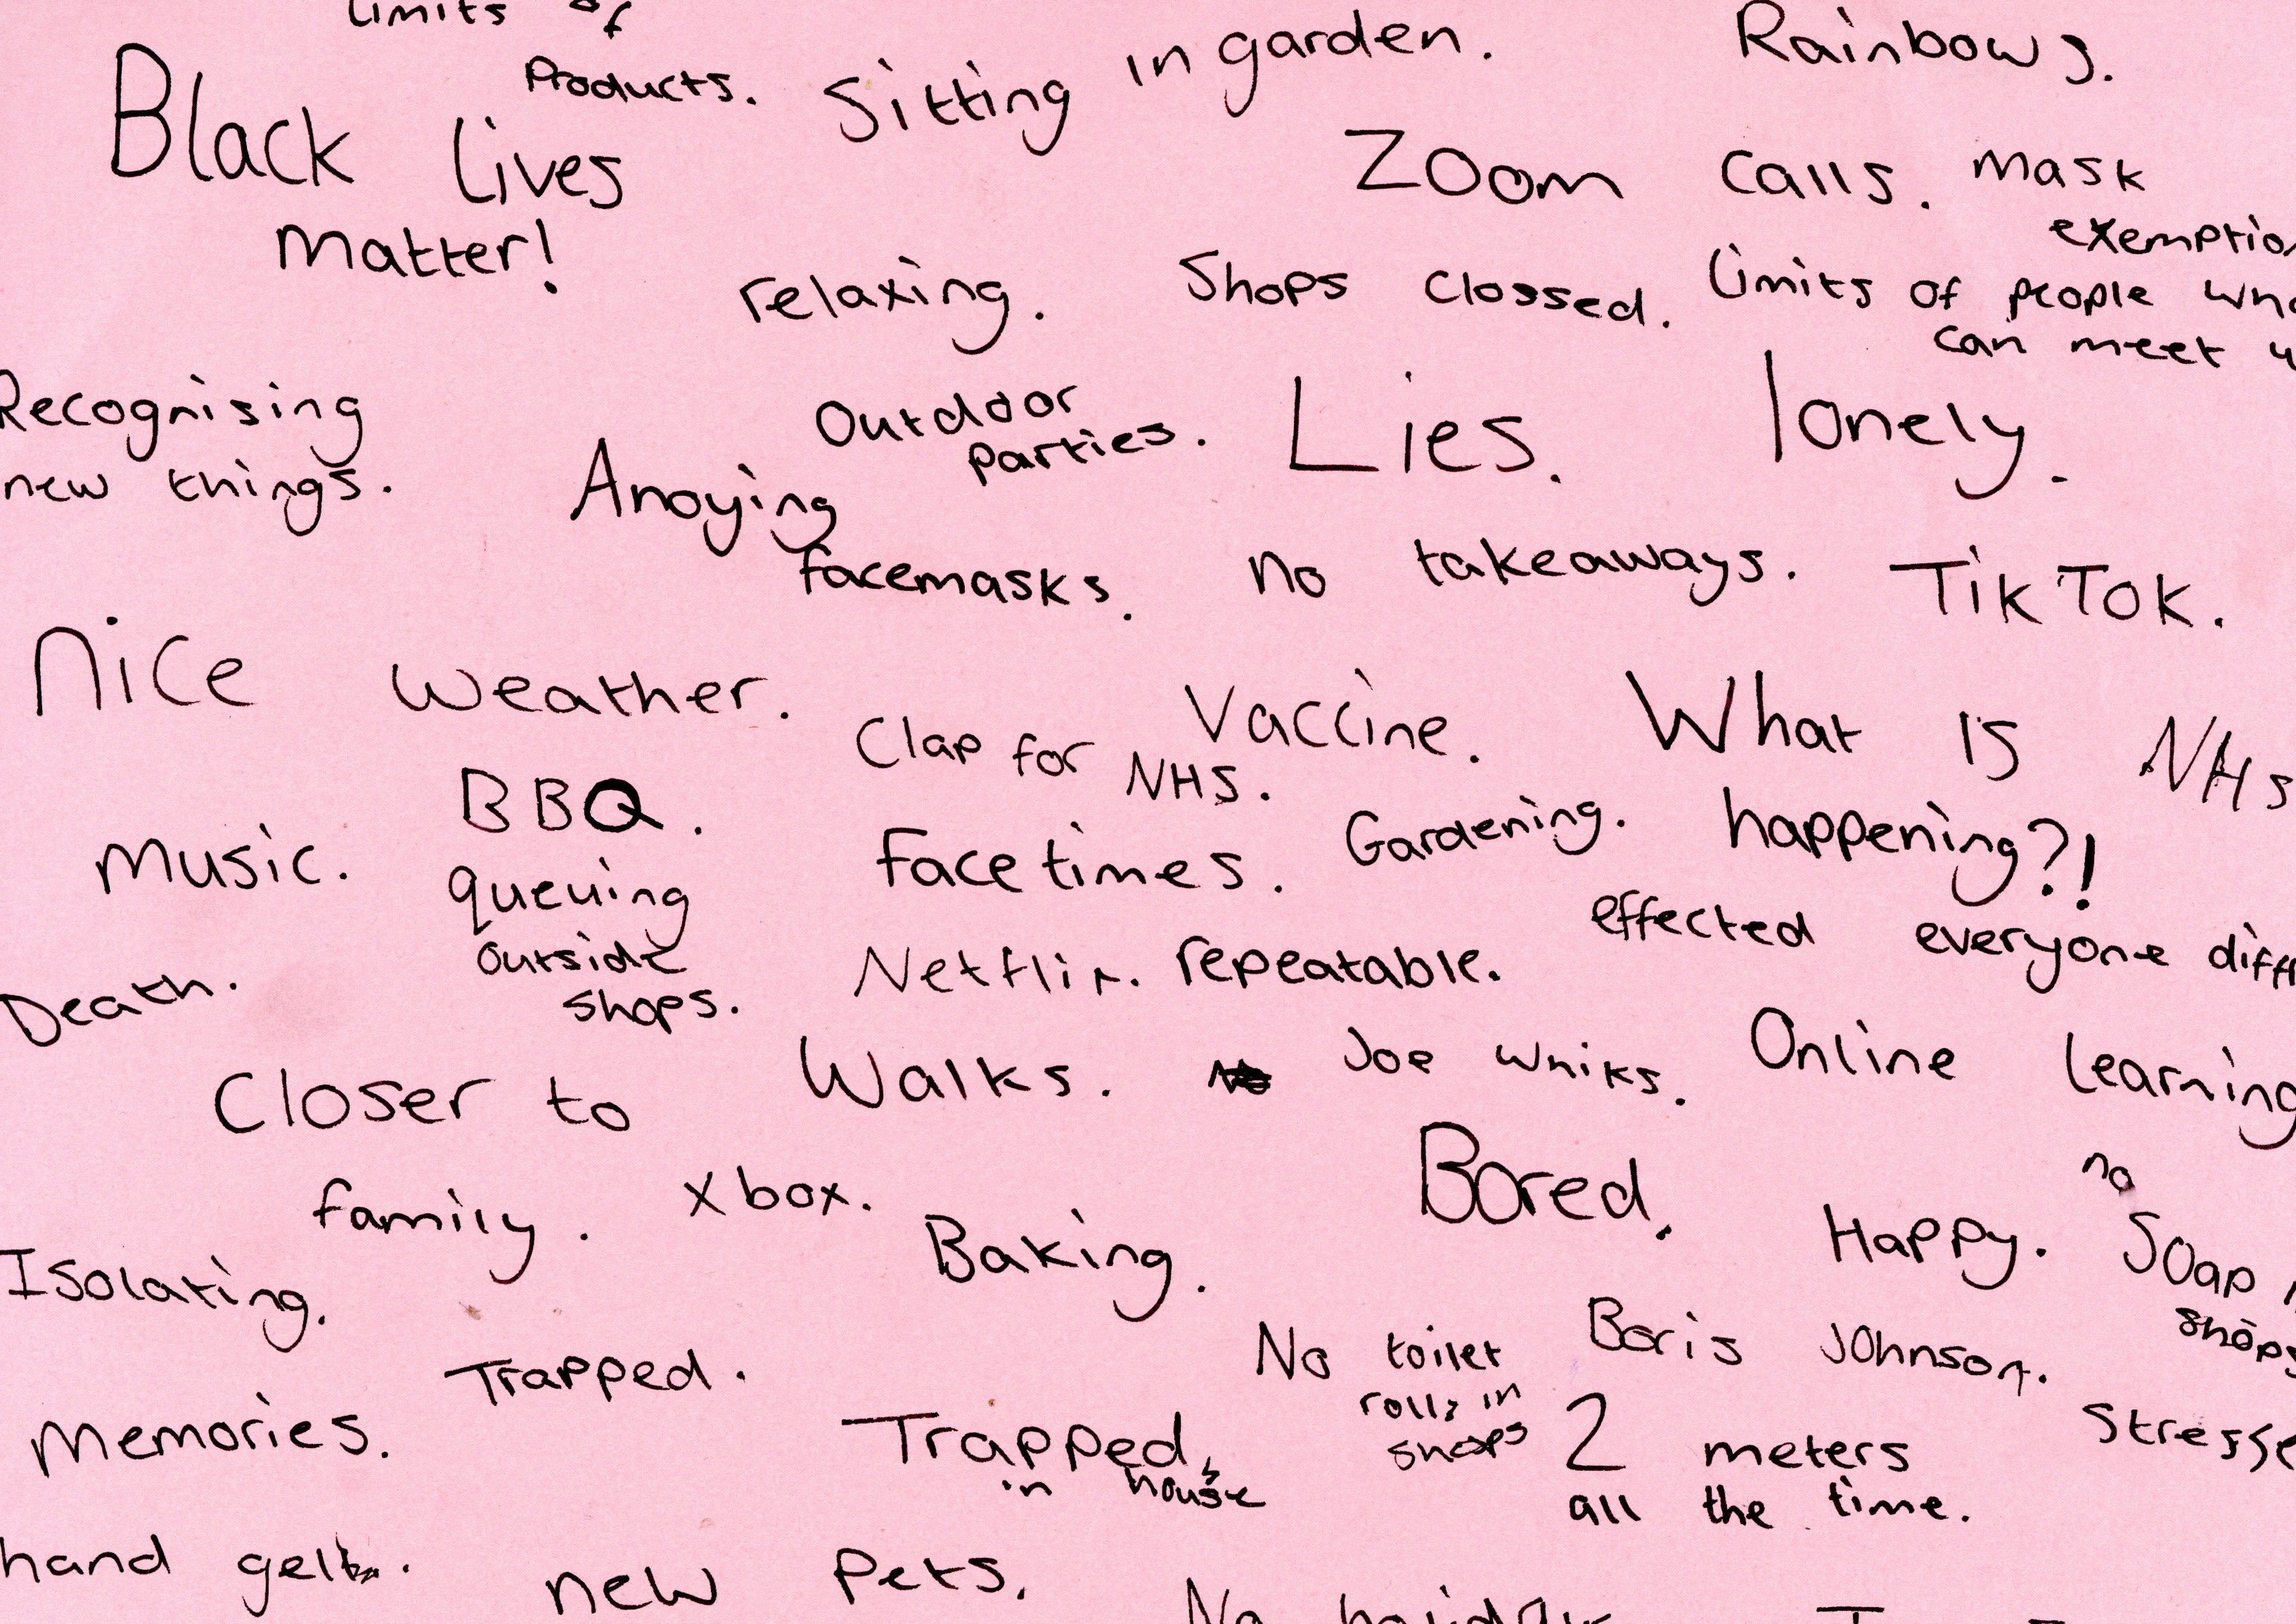 Limits of
Products.
Sitting in garden.
Rainbows.
Black lives
matter!
Zoom calls.
mask
exemption
relaxing.
Shops clossed.
Limits of people who
can meet u
Recognising
new things.
Outdoor
parties.
Lies.
lonely.
Anoying
facemasks.
no takeaways.
TikTok.
nice weather.
Clap for
NHS.
Vaccine.
What is
happening?!
NHS
BBQ.
music.
queuing
outside
shops.
Facetimes.
Gardening.
effected everyone diff
Death.
Netflix.
repeatable.
Closer to
family.
Walks.
Joe Whiks.
Online learning
xbox.
Baking.
Bored.
Happy.
no
Soap
shops
Isolating.
Trapped.
No toilet
rolls in
shops
Boris Johnson.
memories.
Trapped
in house
2 meters
all the time.
Stresse
hand gel
new pets.
No